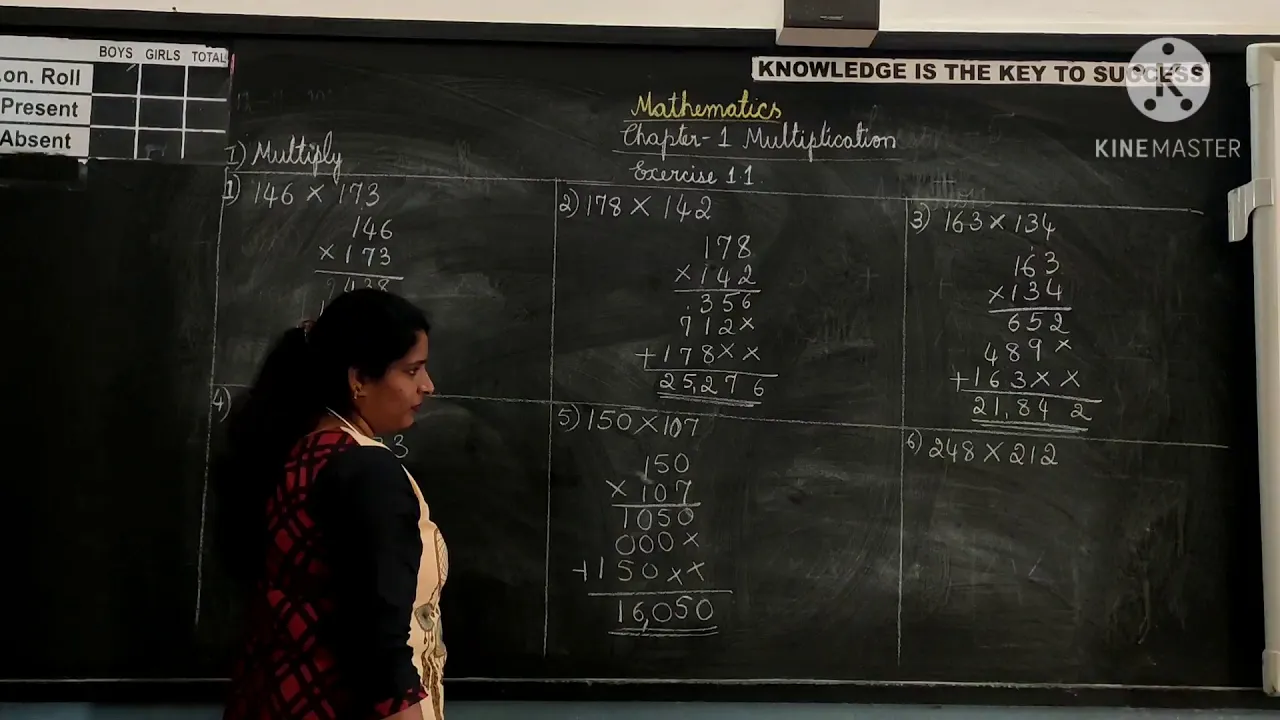 BOYS GIRLS TOTAL
on. Roll
Present
Absent
KNOWLEDGE IS THE KEY TO SUCCESS
KINEMASTER
Mathematics
Chapter-1 Multiplication
Exercise 1.1
I) Multiply
1) 146 × 173
146
× 173
2438
2) 178 × 142
178
× 142
356
712×
+178××
25,276
3) 163 × 134
163
×134
652
489×
+163××
21,842
4)
3
5) 150 × 107
150
× 107
1050
000×
+150××
16,050
6) 248 × 212